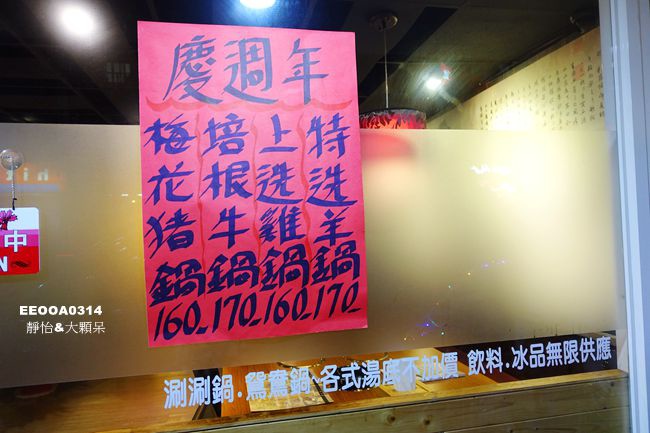 慶週年
特選羊鍋170
上選雞鍋160
培根牛鍋170
梅花豬鍋160
中
N
EEOOA0314
靜怡&大顆呆
涮涮鍋.鴛鴦鍋.各式湯底不加價 飲料.冰品無限供應